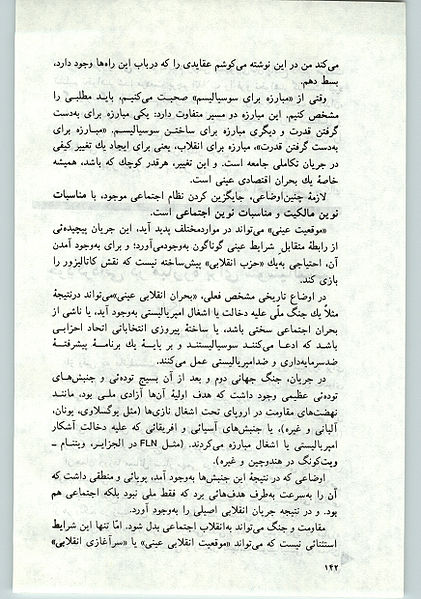 می‌کند من در این نوشته می‌کوشم عقایدی را که درباب این راه‌ها وجود دارد،
بسط دهم.
وقتی از «مبارزه برای سوسیالیسم» صحبت می‌کنیم، باید مطلبی را
مشخص کنیم. این مبارزه دو مسیر متفاوت دارد: یکی مبارزه برای به‌دست
گرفتن قدرت و دیگری مبارزه برای ساختن سوسیالیسم. «مبارزه برای
به‌دست گرفتن قدرت»، مبارزه برای انقلاب، یعنی برای ایجاد یک تغییر کیفی
در جریان تکاملی جامعه است. و این تغییر، هرقدر کوچک که باشد، همیشه
خاصهٔ یک بحران اقتصادی عینی است.
لازمهٔ چنین‌اوضاعی، جایگزین کردن نظام اجتماعی موجود، با مناسبات
نوین مالکیت و مناسبات نوین اجتماعی است.
«موقعیت عینی» می‌تواند در مواردمختلف پدید آید، این جریان پیچیده‌ئی
از رابطهٔ متقابل شرایط عینی گوناگون به‌وجودمی‌آورد؛ و برای به‌وجود آمدن
آن، احتیاجی به‌یک «حزب انقلابی» پیش‌ساخته نیست که نقش کاتالیزور را
بازی کند.
در اوضاع تاریخی مشخص فعلی، «بحران انقلابی عینی»می‌تواند درنتیجهٔ
مثلاً یک جنگ ملّی علیه دخالت یا اشغال امپریالیستی به‌وجود آید، یا ناشی از
بحران اجتماعی سختی باشد، یا ساختهٔ پیروزی انتخاباتی اتحاد احزابی
باشد که ادعا می‌کنند سوسیالیستند و بر پایهٔ یک برنامهٔ پیشرفتهٔ
ضدسرمایه‌داری و ضدامپریالیستی عمل می‌کنند.
در جریان، جنگ جهانی دوم و بعد از آن بسیج توده‌ئی و جنبش‌های
توده‌ئی عظیمی وجود داشت که هدف اولیهٔ آن‌ها آزادی ملی بود، مانند
نهضت‌های مقاومت در اروپای تحت اشغال نازی‌ها (مثل یوگسلاوی، یونان،
آلبانی و غیره)، یا جنبش‌های آسیائی و افریقائی که علیه دخالت آشکار
امپریالیستی یا اشغال مبارزه می‌کردند. (مثل FLN در الجزایر، ویتنام ـ
ویت‌کونگ در هندوچین و غیره).
اوضاعی که در نتیجهٔ این جنبش‌ها به‌وجود آمد، پویائی و منطقی داشت که
آن را به‌سرعت به‌طرف هدف‌هائی برد که فقط ملی نبود بلکه اجتماعی هم
بود. و در نتیجه جریان انقلابی اصیلی را به‌وجود آورد.
مقاومت و جنگ می‌تواند به‌انقلاب اجتماعی بدل شود. امّا تنها این شرایط
استثنائی نیست که می‌تواند «موقعیت انقلابی عینی» یا «سرآغازی انقلابی»
۱۴۲